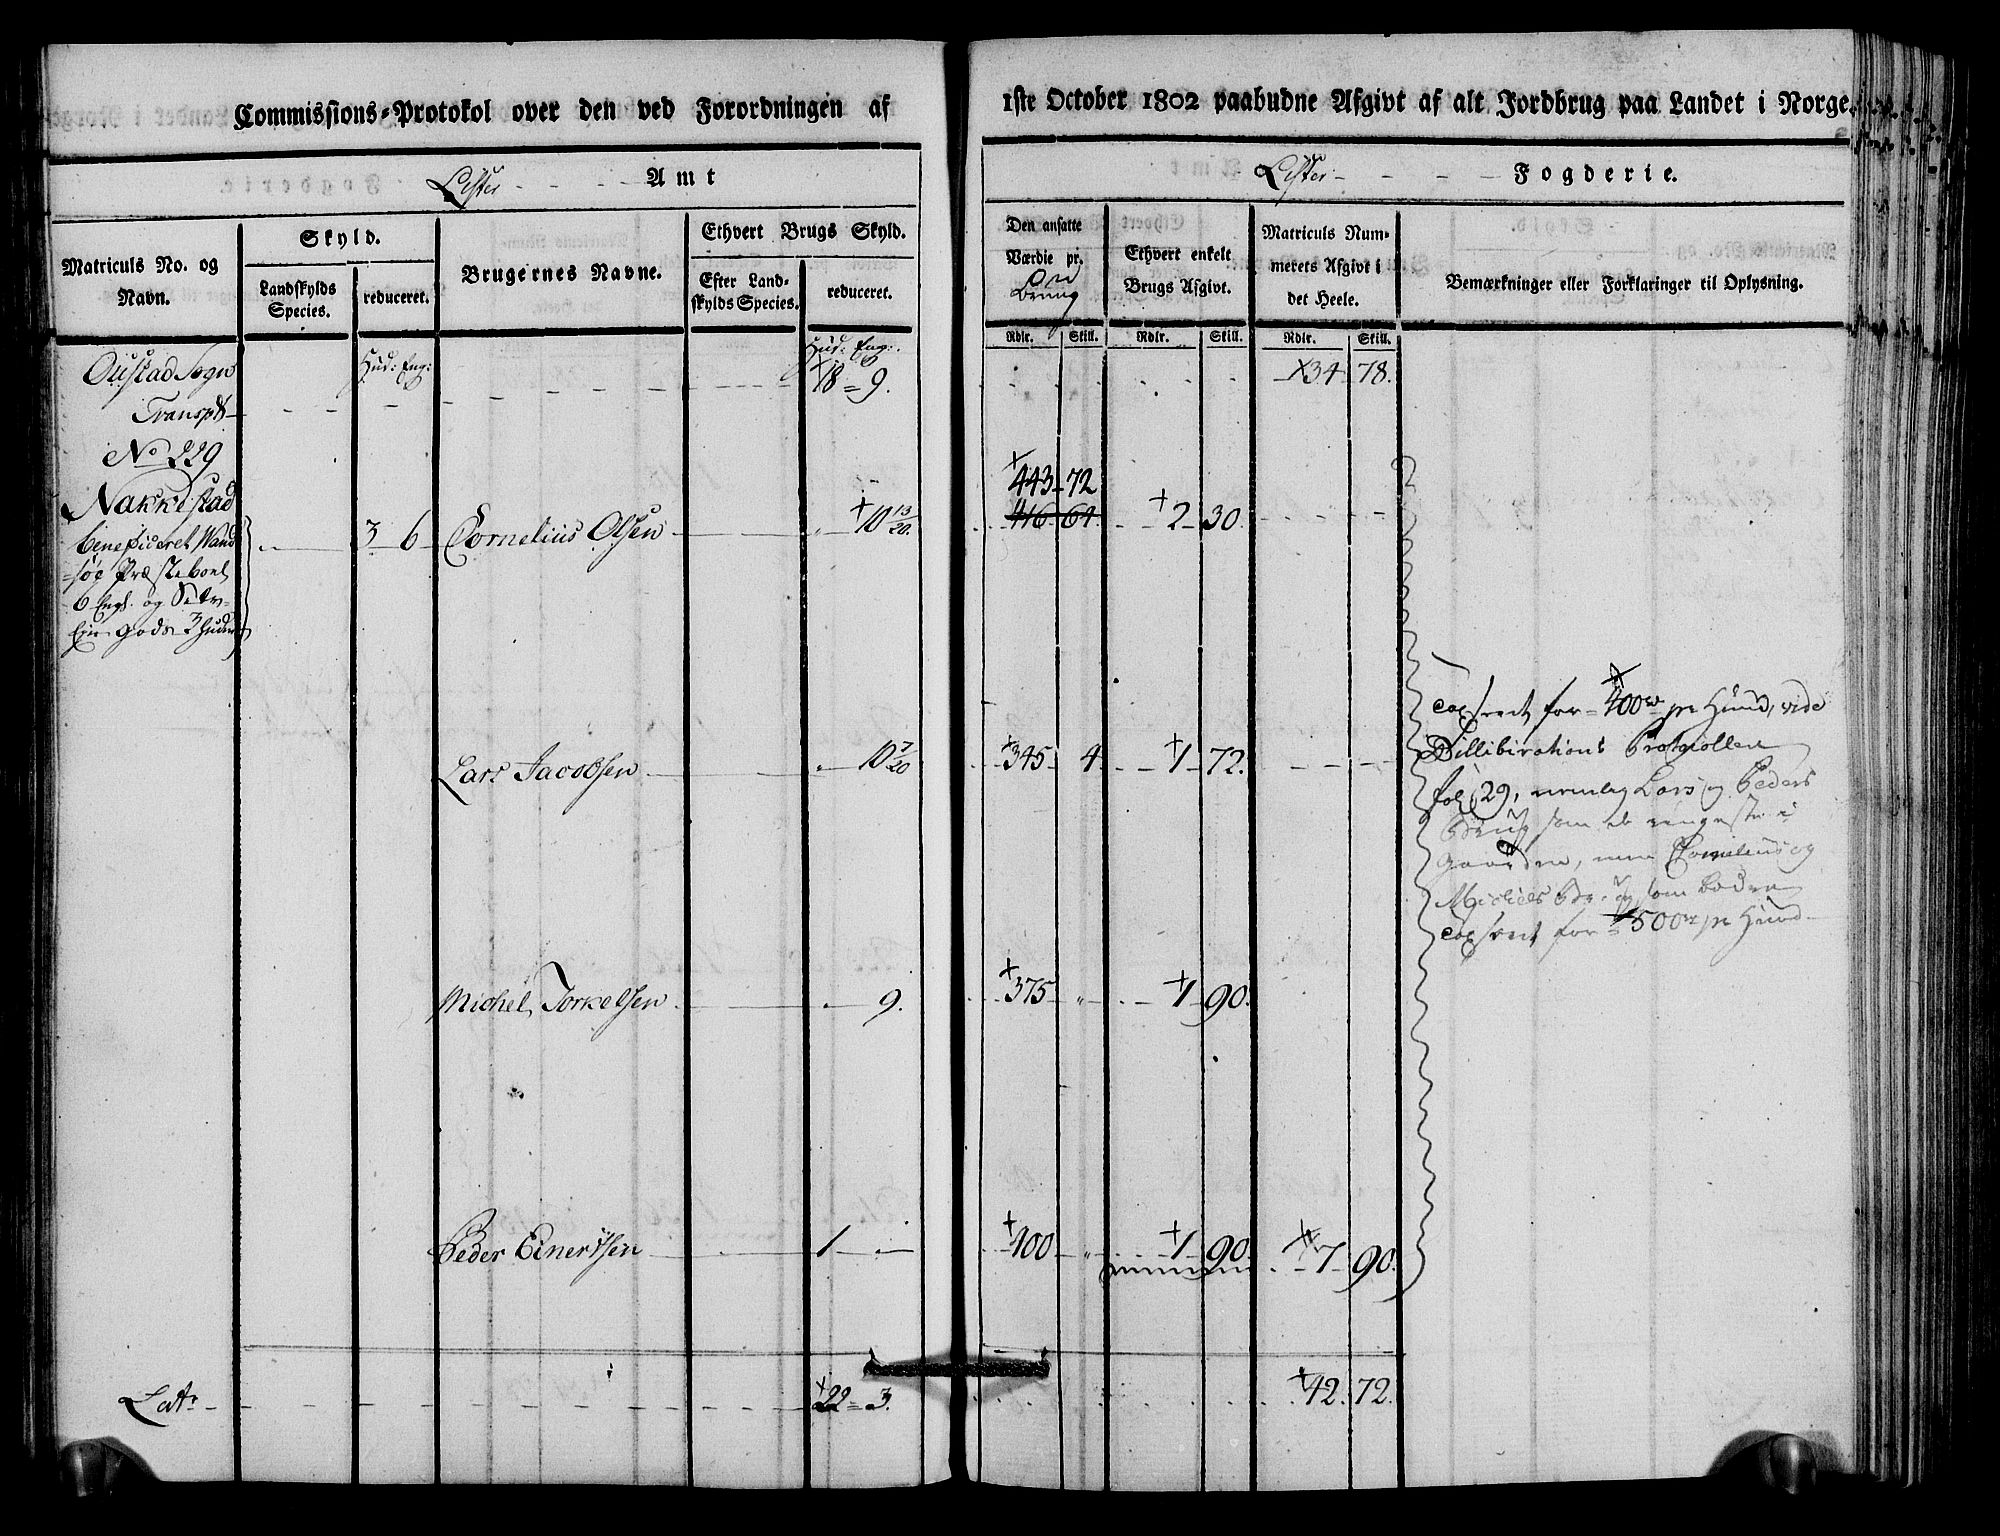 Commissions-Protokol over den ved Forordningen af
1ste October 1802 paabudne Afgivt af alt Jordbrug paa Landet i Norge.
Lister Amt
Lister Fogderie.
Matriculs No. og Navn.
Skyld.
Landskylds Species.
reduceret.
Brugernes Navne.
Ethvert Brugs Skyld.
Efter Landskylds Species.
reduceret.
Den ansatte Værdie pr. Brug
Ethvert enkelt Brugs Afgivt.
Matriculs Nummerets Afgivt i det Heele.
Bemærkninger eller Forklaringer til Oplysning.
Rdlr. Skill. Rdlr. Skill. Rdlr. Skill.
Oustad Sogn Hud: Eng: Hud: Eng:
Transpt 18 = 9. 34 78.
No 229
Nakkestad 443 72
beneficeret Vand 3 6 Cornelius Olsen 10 13/20. 416 64 2 30.
søe Præsteboel
6 Eng. og
gods 3 Huder
Lars Jacobsen 10 7/20 345 4 1 72.
Michel Torkelsen 9. 375 1 90.
Peder Einertsen 1 100 1 90. 7 90.
taxeret for 400 pr Hud, vide
Dillibirations Protocollen
fol 29, nemlig Lars og Peders
Brug som de ringeste i
gaarden, men Cornelius og
Michels Brug som bedre
taxeret for 500 pr Hud
Lats 22 = 3. 42. 72.